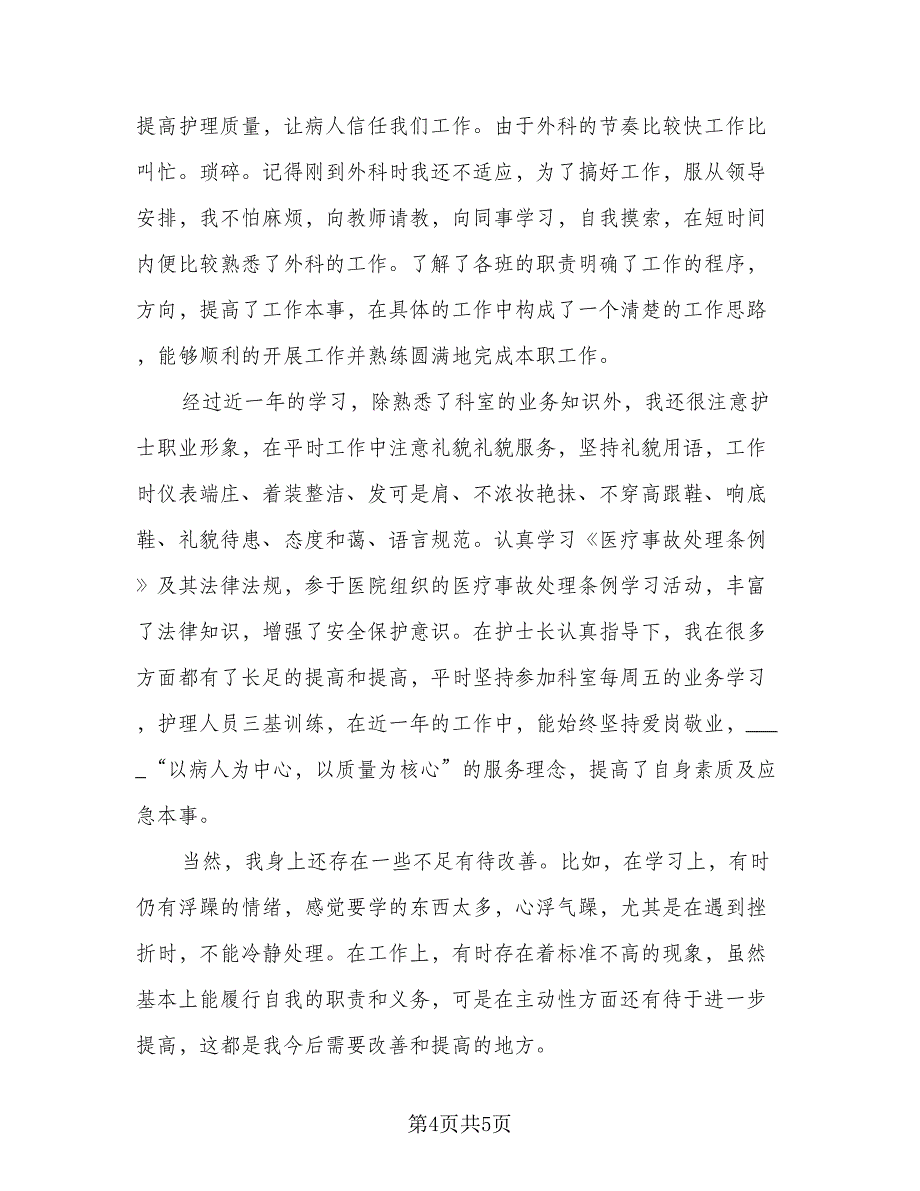 提高护理质量，让病人信任我们工作。由于外科的节奏比较快工作比
叫忙。琐碎。记得刚到外科时我还不适应，为了搞好工作，服从领导
安排，我不怕麻烦，向教师请教，向同事学习，自我摸索，在短时间
内便比较熟悉了外科的工作。了解了各班的职责明确了工作的程序，
方向，提高了工作本事，在具体的工作中构成了一个清楚的工作思路
，能够顺利的开展工作并熟练圆满地完成本职工作。
经过近一年的学习，除熟悉了科室的业务知识外，我还很注意护
士职业形象，在平时工作中注意礼貌礼貌服务，坚持礼貌用语，工作
时仪表端庄、着装整洁、发可是肩、不浓妆艳抹、不穿高跟鞋、响底
鞋、礼貌待患、态度和蔼、语言规范。认真学习《医疗事故处理条例
》及其法律法规，参于医院组织的医疗事故处理条例学习活动，丰富
了法律知识，增强了安全保护意识。在护士长认真指导下，我在很多
方面都有了长足的提高和提高，平时坚持参加科室每周五的业务学习
，护理人员三基训练，在近一年的工作中，能始终坚持爱岗敬业，___
_“以病人为中心，以质量为核心”的服务理念，提高了自身素质及应
急本事。
当然，我身上还存在一些不足有待改善。比如，在学习上，有时
仍有浮躁的情绪，感觉要学的东西太多，心浮气躁，尤其是在遇到挫
折时，不能冷静处理。在工作上，有时存在着标准不高的现象，虽然
基本上能履行自我的职责和义务，可是在主动性方面还有待于进一步
提高，这都是我今后需要改善和提高的地方。
第4页共5页